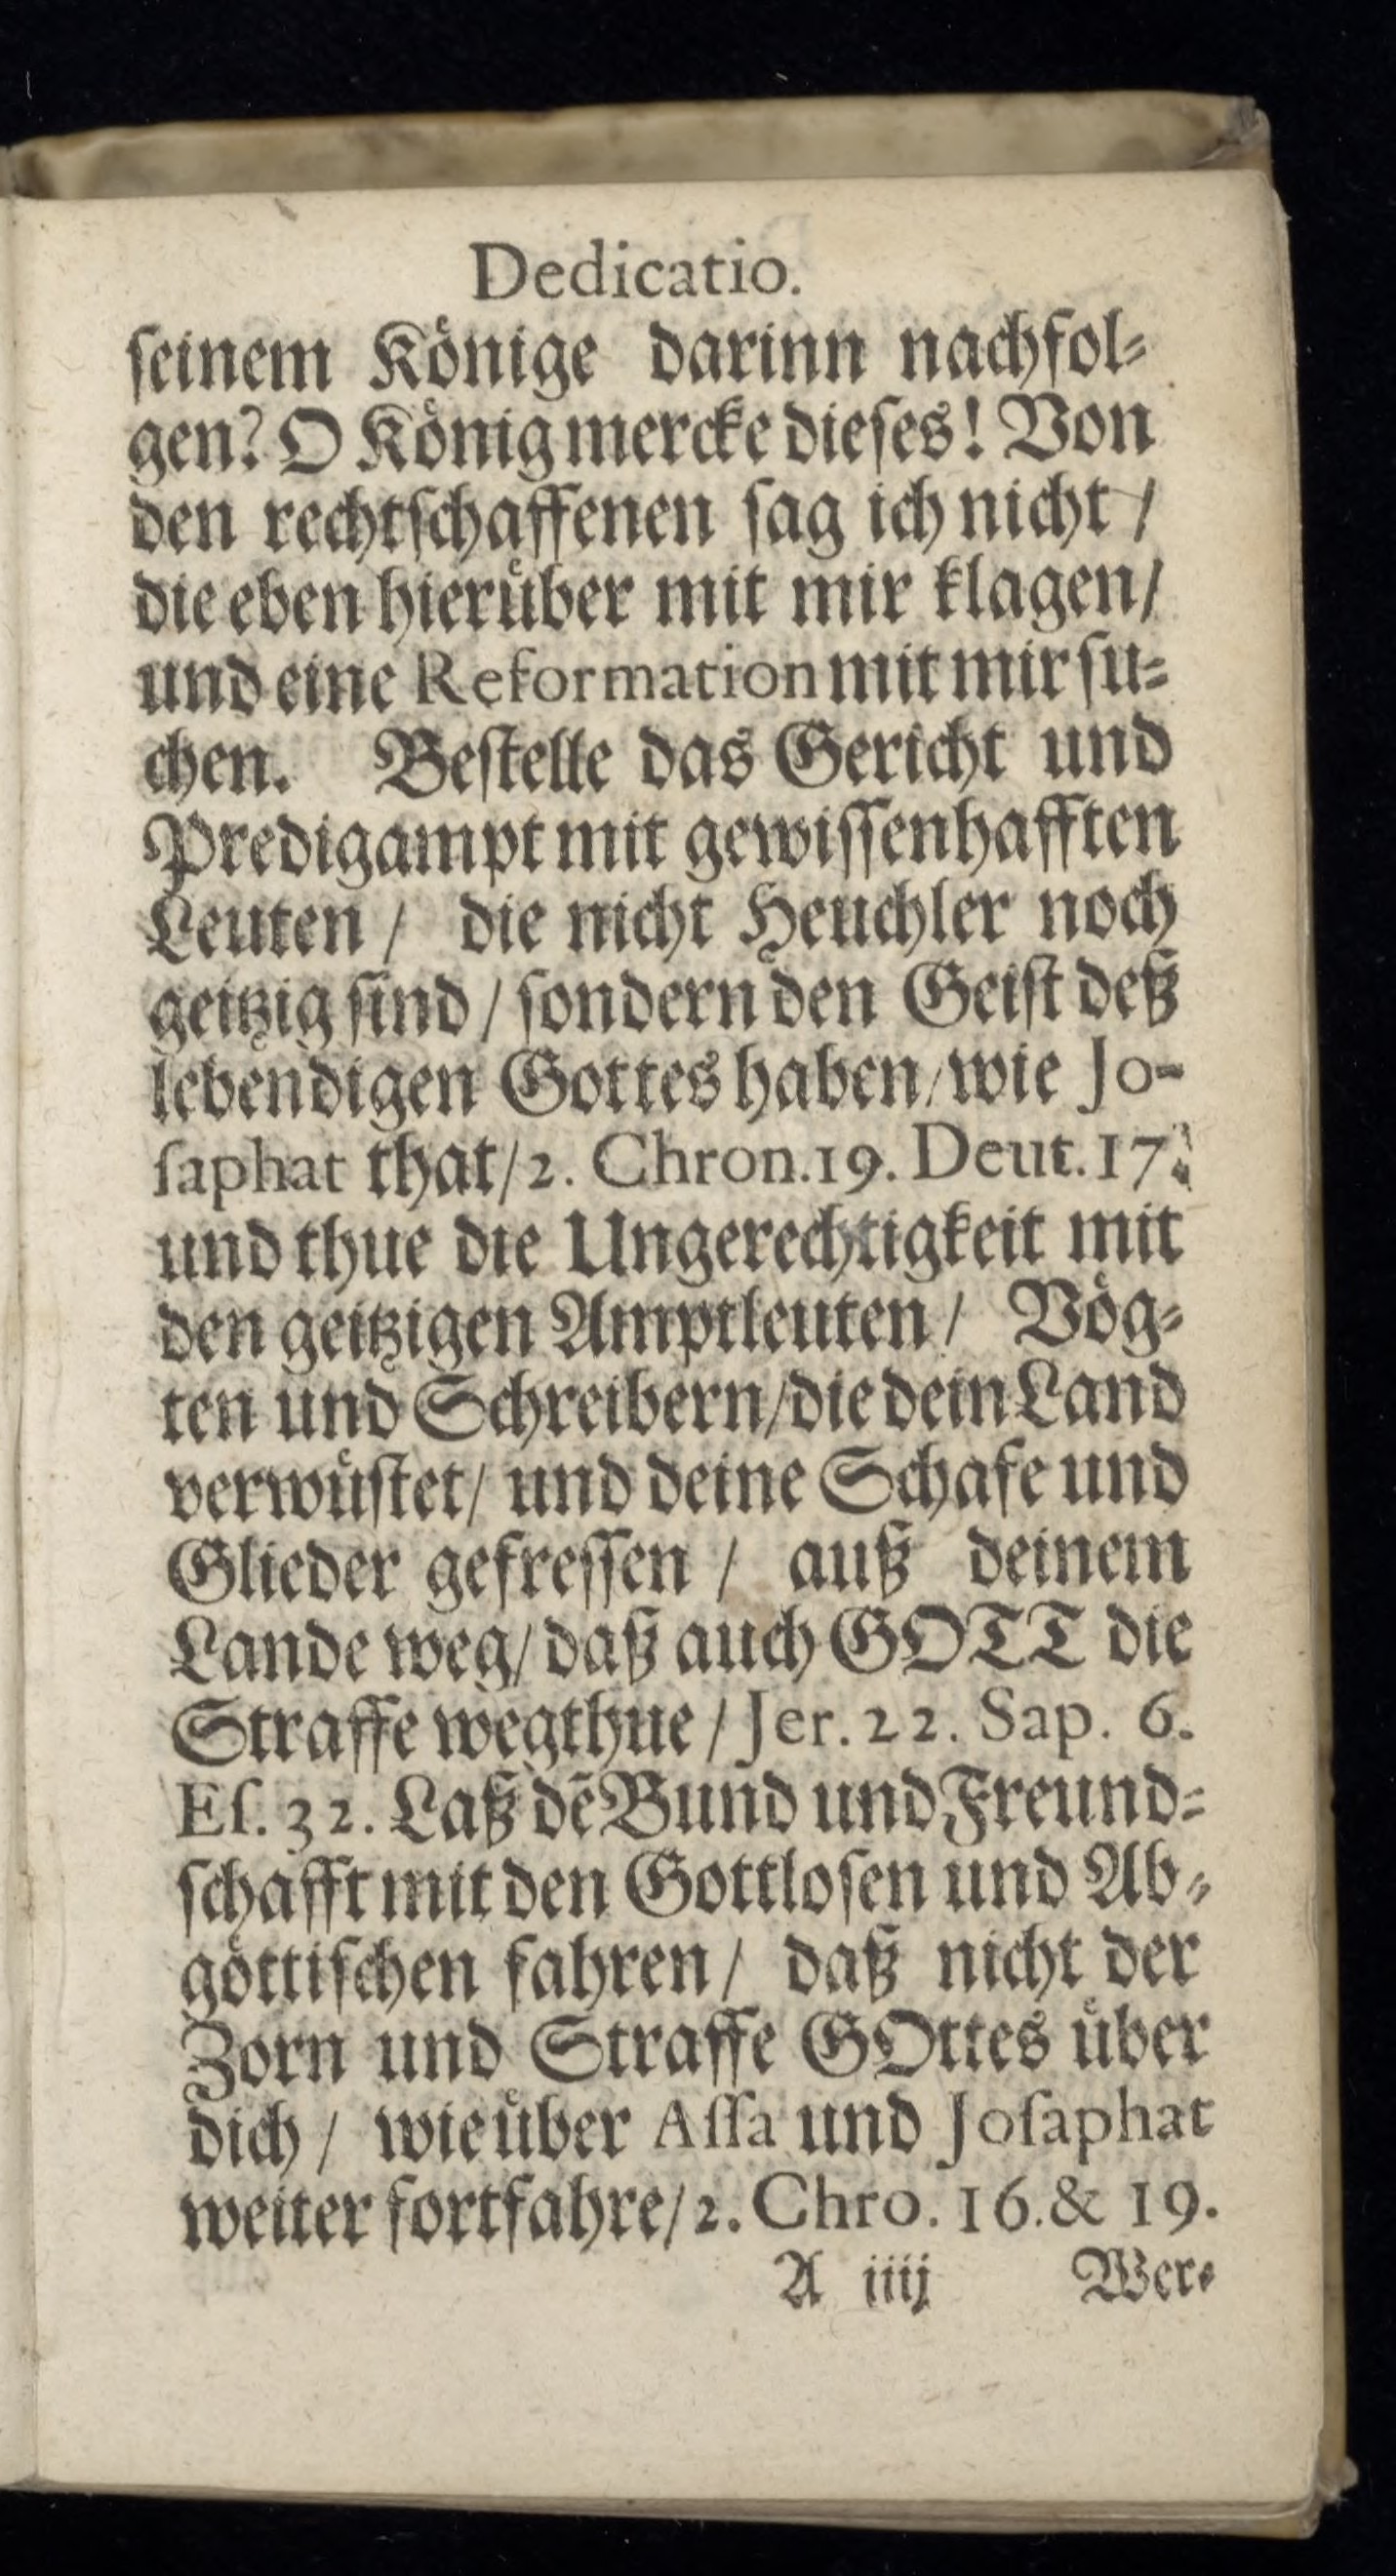 Dedicatio.
ſeinem Koͤnige darinn nachfol⸗
gen? O Koͤnig mercke dieſes! Von
den rechtſchaffenen ſag ich nicht /
die eben hieruͤber mit mir klagen/
und eine Reformation mit mir ſu⸗
chen. Beſtelle das Gericht und
Predigampt mit gewiſſenhafften
Leuten / die nicht Heuchler noch
geitzig ſind / ſondern den Geiſt deß
lebendigen Gottes haben/wie Jo-
ſaphat that/2. Chron.19. Deut.17.
und thue die Ungerechtigkeit mit
den geitzigen Amptleuten / Voͤg⸗
ten und Schreibern/die dein Land
verwuͤſtet/ und deine Schafe und
Glieder gefreſſen / auß deinem
Lande weg/daß auch GOTT die
Straffe wegthue / Jer. 22. Sap. 6.
Eſ. 32. Laß dē Bund und Freund⸗
ſchafft mit den Gottloſen und Ab⸗
goͤttiſchen fahren/ daß nicht der
Zorn und Straffe GOttes uͤber
dich / wie uͤber Aſſa und Joſaphat
weiter fortfahre/2. Chro. 16.& 19.
A iiij Wer⸗